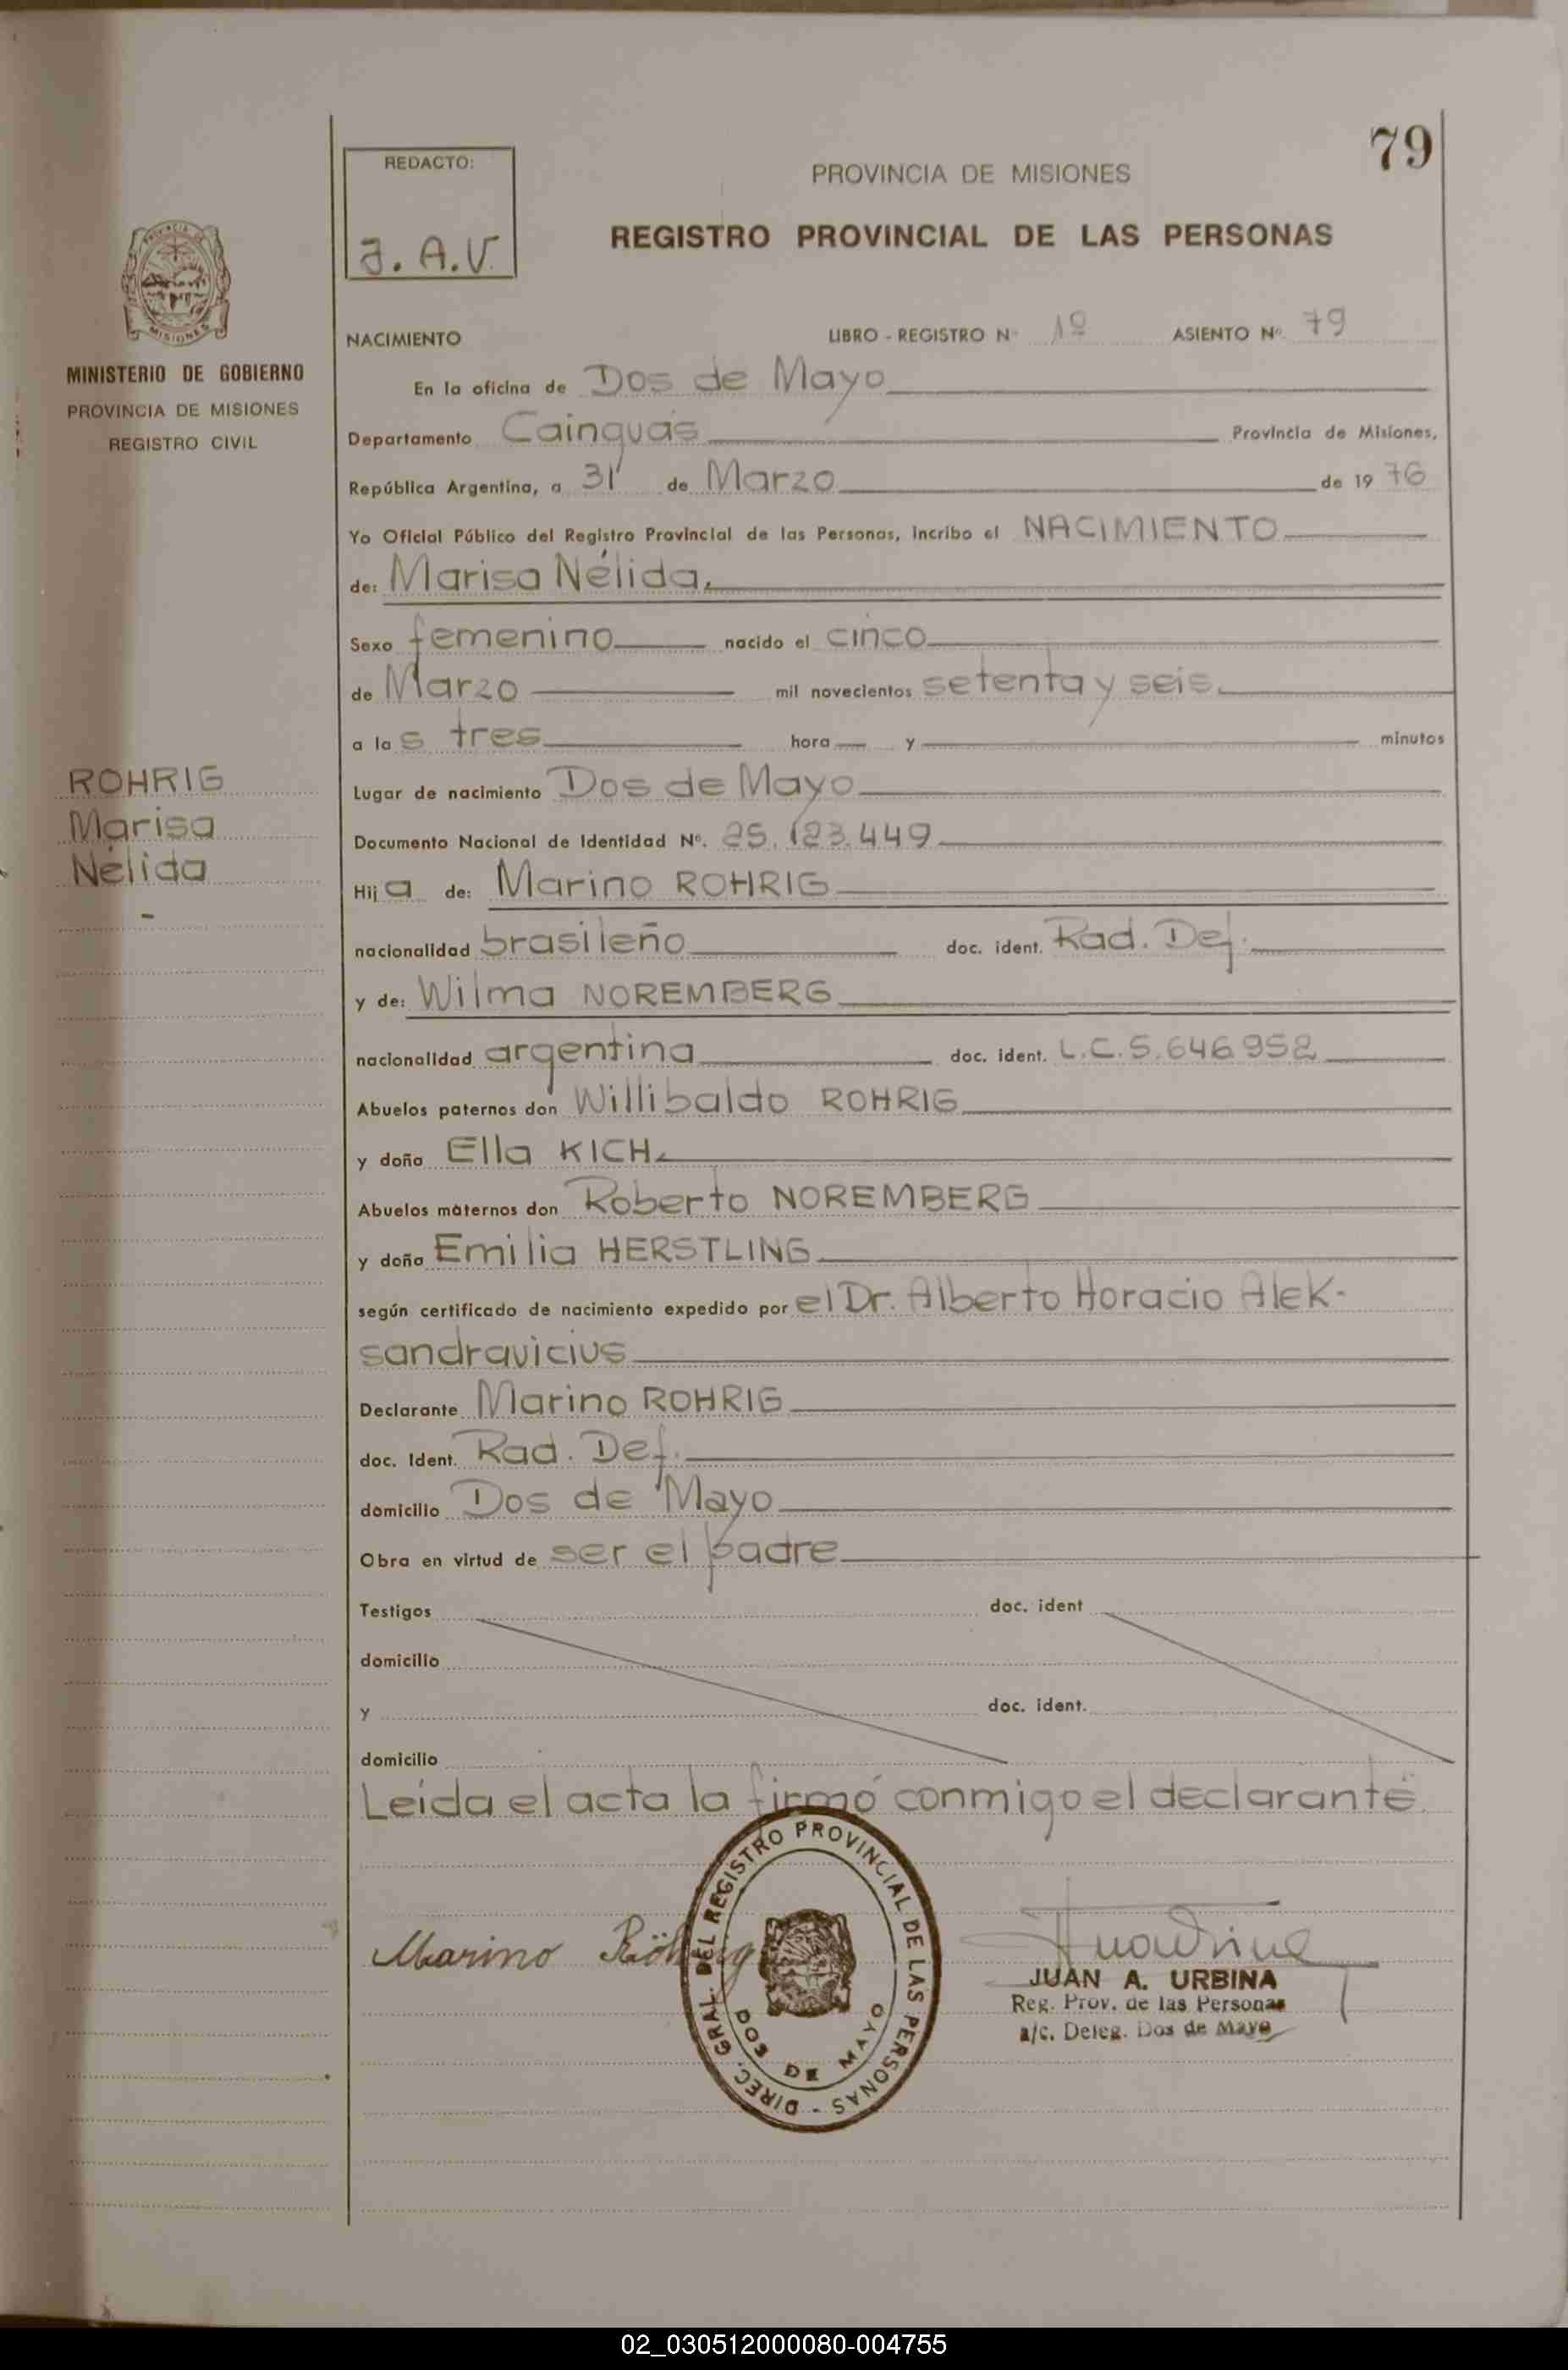 79
REDACTO:
J. A. V.
PROVINCIA DE MISIONES
REGISTRO PROVINCIAL DE LAS PERSONAS
PROVINCIA DE
MISIONES
MINISTERIO DE GOBIERNO
PROVINCIA DE MISIONES
REGISTRO CIVIL
NACIMIENTO LIBRO - REGISTRO Nº 1º ASIENTO Nº 79
En la oficina de Dos de Mayo
Departamento Cainguás Provincia de Misiones,
República Argentina, a 31 de Marzo de 19 76
Yo Oficial Público del Registro Provincial de las Personas, incribo el NACIMIENTO
de: Marisa Nélida.
Sexo femenino nacido el cinco
de Marzo mil novecientos setenta y seis.
a la s tres hora y minutos
Lugar de nacimiento Dos de Mayo
Documento Nacional de Identidad Nº. 25.123.449
Hij a de: Marino ROHRIG
nacionalidad brasileño doc. ident. Rad. Def.
y de: Wilma NOREMBERG
nacionalidad argentina doc. ident. L.C.5.646952
Abuelos paternos don Willibaldo ROHRIG
y doña Ella KICH.
Abuelos maternos don Roberto NOREMBERG
y doña Emilia HERSTLING
según certificado de nacimiento expedido por el Dr. Alberto Horacio Alek-
sandravicius
Declarante Marino ROHRIG
doc. Ident. Rad. Def.
domicilio Dos de Mayo
Obra en virtud de ser el padre
Testigos doc. ident
domicilio
y doc. ident.
domicilio
Leída el acta la firmó conmigo el declarante.
ROHRIG
Marisa
Nélida
-
Marino Röhrig
DIREC. GRAL. DEL REGISTRO PROVINCIAL DE LAS PERSONAS -
DOS DE MAYO
JUAN A. URBINA
Reg. Prov. de las Personas
a/c. Deleg. Dos de Mayo
02_030512000080-004755